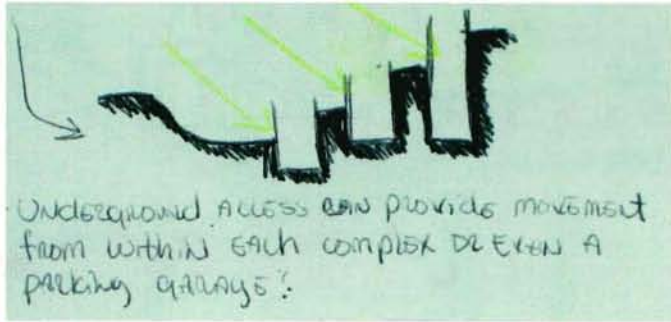 . UNDERGROUND ACCESS CAN PROVIDE MOVEMENT
from within EACH COMPLEX OR EVEN A
parking GARAGE?